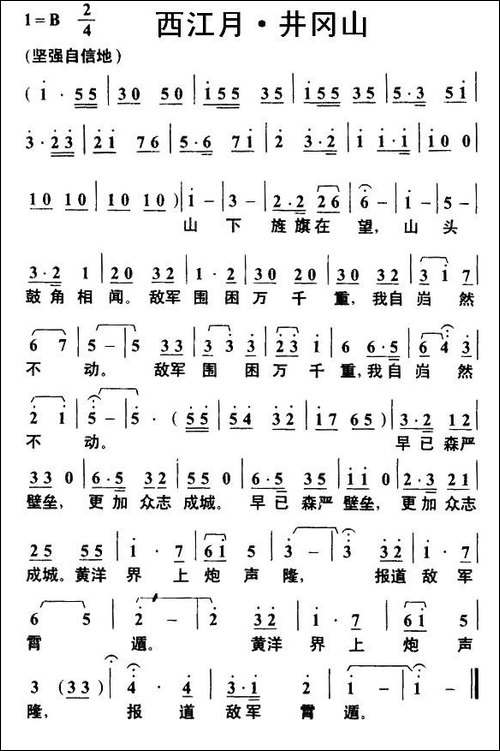 1=B 2/4 西江月·井冈山
(坚强自信地)
( 1 · 5 5 | 3 0 5 0 | 1 5 5 3 5 | 1 5 5 3 5 | 5 · 3 5 1 |
3 · 2 3 | 2 1 7 6 | 5 · 6 7 1 | 2 3 · 2 | 1 1 · 1 | 1 0 0 |
1 0 1 0 | 1 0 1 0 ) | 1 - | 3 - | 2 · 2 2 6 | 6 - | 1 - | 5 - |
山 下 旌旗在 望, 山 头
3 · 2 1 | 2 0 3 2 | 1 · 2 | 3 0 2 0 | 3 0 3 2 | 3 1 7 |
鼓角相闻。敌军 围困万 千 重,我自岿 然
6 7 | 5 - | 5 3 3 | 3 3 3 | 2 3 1 | 6 6 · 5 | 6 4 3 |
不 动。 敌军 围 困万 千 重,我自岿 然
2 1 | 5 - | 5 · ( 5 5 | 5 4 3 2 | 1 7 6 5 ) | 3 · 2 1 2 |
不 动。 早已森严
3 3 0 | 6 · 5 3 2 | 5 3 0 | 6 · 5 3 5 | 1 1 0 | 2 · 3 2 1 |
壁垒, 更加众志 成城。早已森严 壁垒, 更加众志
2 5 5 5 | 1 · 7 | 6 1 5 | 3 - | 3 3 2 | 1 · 7 |
成城。黄洋 界 上 炮 声 隆, 报道 敌 军
6 5 | 2 - | 2 3 2 | 1 · 7 | 6 1 5 |
宵 遁。 黄洋 界 上 炮 声
3 (3 3) | 4 · 4 | 2 3 · 1 | 2 2 | 1 - | 1 - ‖
隆, 报 道 敌军 宵 遁。